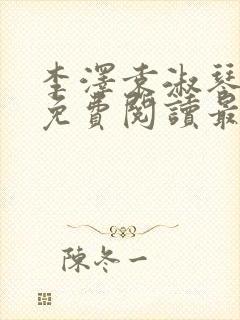 李澤袁淑琴
免費閱讀最
陳冬一